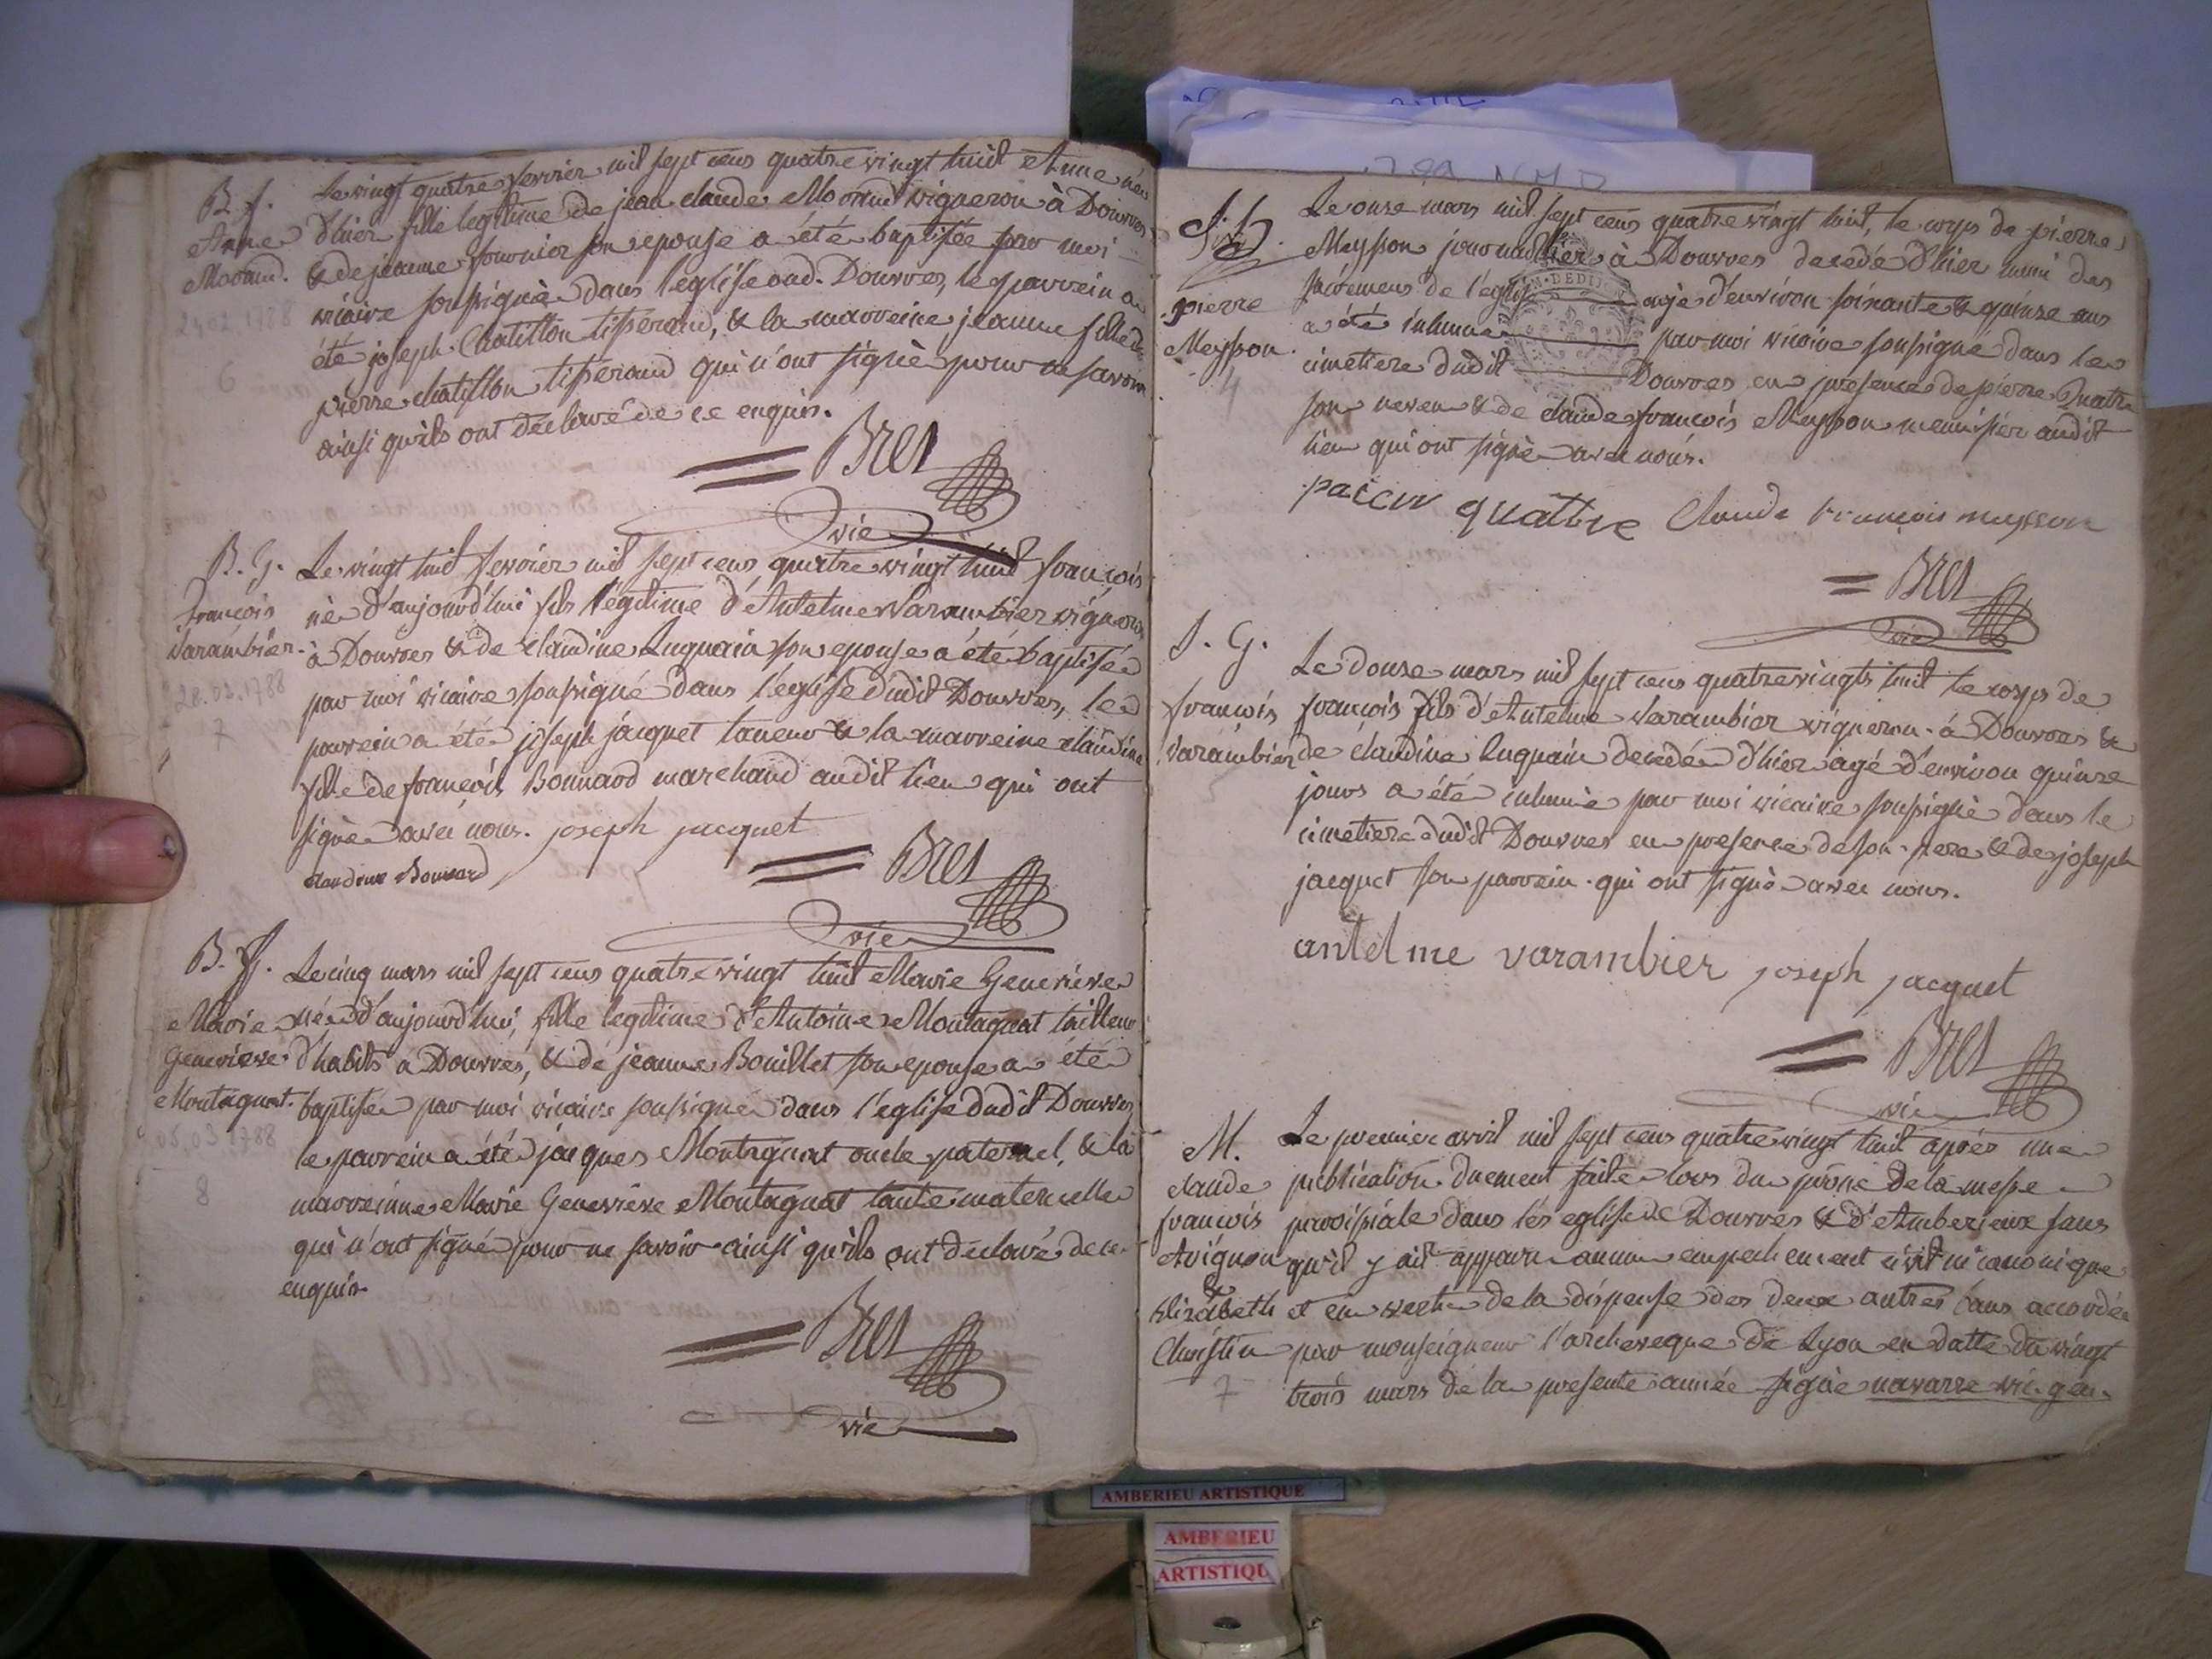 B. f.
Anne
Morand.
24.02.1788
6
Le vingt quatre fevrier mil sept cens quatre vingt huit Anne née
d'hier fille legitime de jean claude Morand vigneron à Douvres
& de jeanne fournier son epouse a été baptisée par moi
vicaire soussigné dans l'eglise dud. Douvres, le parrein a
été joseph Chatillon tisserand, & la marreine jeanne fille de
pierre chatillon tisserand qui n'ont signé pour ne savoir
ainsi qu'ils ont déclaré de ce enquis.
= Bret
vic
B. G.
François
Varambier.
28.02.1788
7
Le vingt huit fevrier mil sept cens quatre vingt huit françois
né d'aujourd'hui fils légitime d'Antelme Varambier vigneron
à Douvres & de claudine Luquain son epouse a été baptisé
par moi vicaire soussigné dans l'eglise dudit Douvres, le
parrein a été joseph jacquet taneur & la marreine claudine
fille de françois Bonnard marchand audit lieu qui ont
signé avec nous. joseph jacquet
claudine Bonnard
= Bret
vic
B. f.
Marie
Genevieve
Montagnat.
05.03.1788
8
Le cinq mars mil sept cens quatre vingt huit Marie Genevieve
née d'aujourd'hui, fille legitime d'Antoine Montagnat tailleur
d'habits a Douvres, & de jeanne Bouillet son epouse a été
baptisée par moi vicaire soussigné dans l'eglise dudit Douvres
le parrein a été jacques Montagnat oncle paternel, & la
marreinne Marie Genevieve Montagnat tante maternelle
qui n'ont signé pour ne savoir ainsi qu'ils ont déclaré de ce
enquis.
= Bret
vic
pierre
Meysson.
4
Le onse mars mil sept cens quatre vingt huit, le corps de pierre
Meysson journallier à Douvres decedé d'hier muni des
sacremens de l'eglise agé d'environ soixante & quinse ans
a été inhumé par moi vicaire soussigné dans le
cimetiere dudit Douvres en presence de pierre Quatre
son neveu & de claude françois Meysson menuisier audit
lieu qui ont signé avec nous.
quattre Claude François meysson
= Bret
vic
S. G.
françois
Varambier
5
Le douse mars mil sept cens quatre vingts huit le corps de
françois fils d'Antelme Varambier vigneron à Douvres &
de claudine Luquain decedé d'hier agé d'environ quinse
jours a été inhumé par moi vicaire soussigné dans le
cimetiere dudit Douvres en presence de son pere & de joseph
jacquet son parrein qui ont signé avec nous.
antelme varambier joseph jacquet
= Bret
vic
M.
claude
françois
Avignon
&
Elizabeth
Christin
7
Le premier avril mil sept cens quatre vingt huit après une
publication duement faite lors du prône de la messe
paroissiale dans les eglise de Douvres & d'Amberieux sans
qu'il y ait apparu aucun empechement civil ni canonique
et en vertu de la dispense des deux autres bans accordée
par monseigneur l'archeveque de Lyon en datte du vingt
trois mars de la presente année signé navarre vic. gen.
AMBERIEU ARTISTIQUE
AMBERIEU
ARTISTIQU